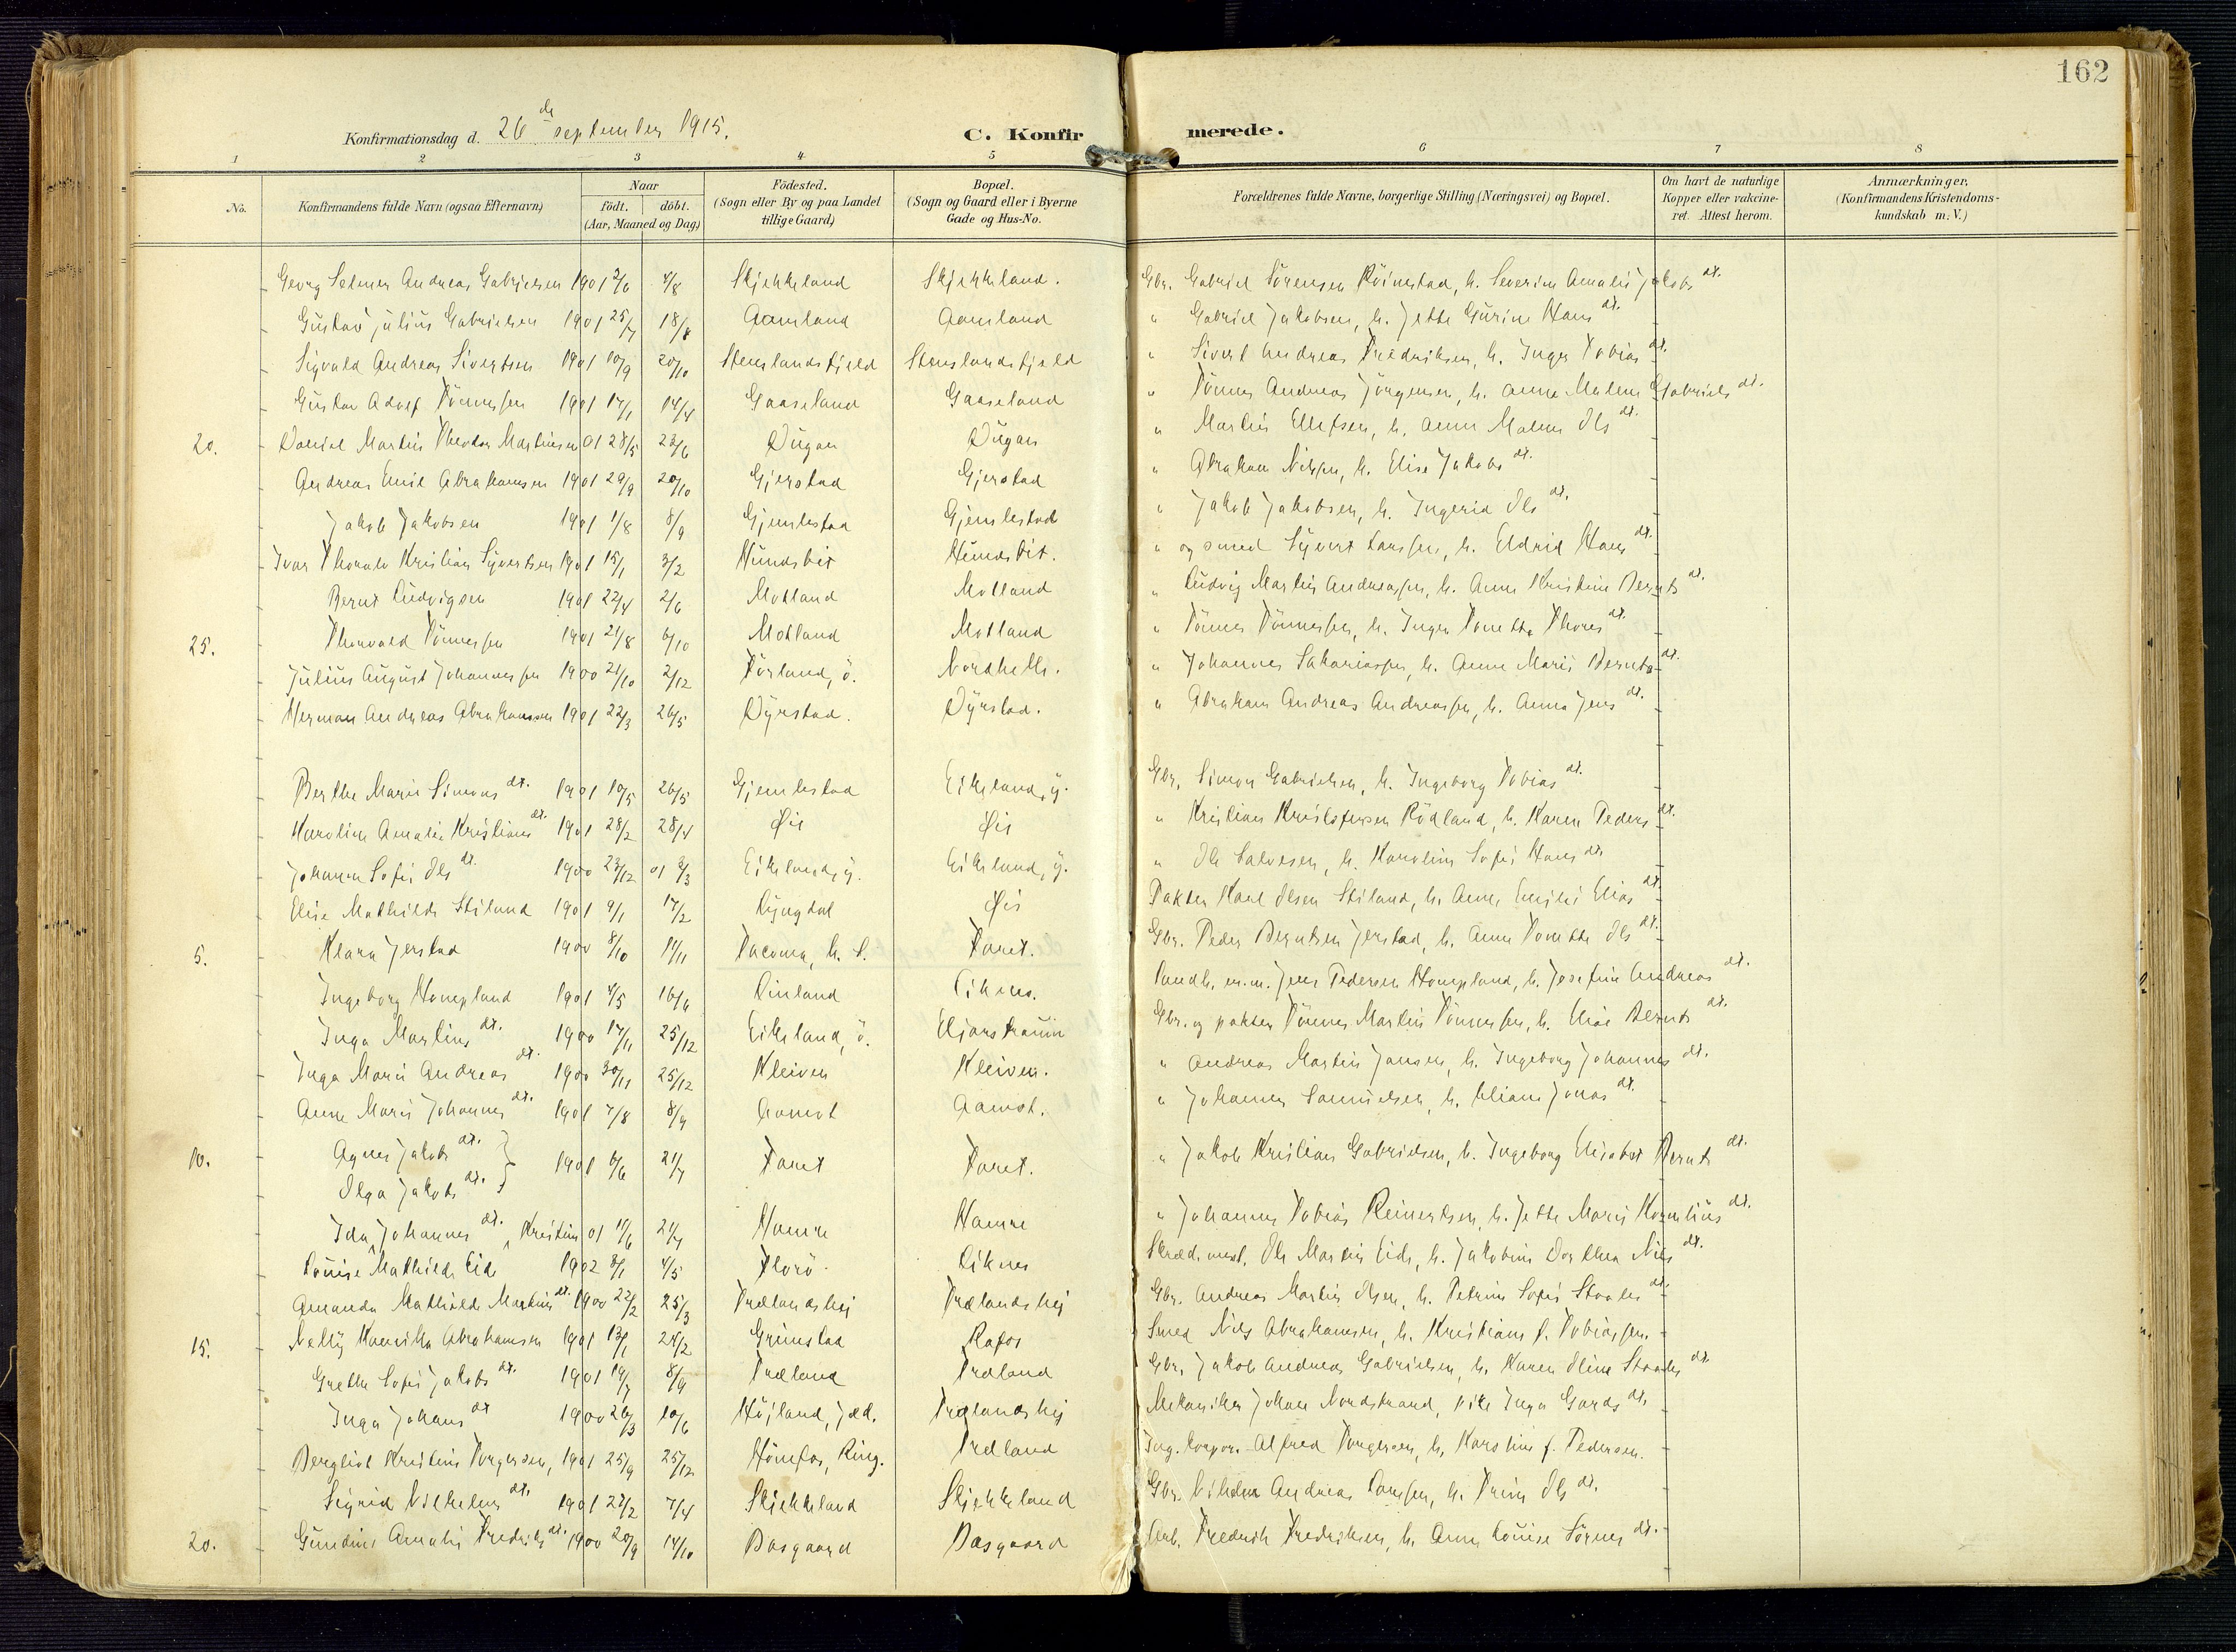 162
Konfirmationsdag d. 26 de september 1915.
C. Konfirmerede.
1 2 3 4 5 6 7 8
No.
Konfirmandens fulde Navn (ogsaa Efternavn)
Naar
födt. döbt.
(Aar, Maaned og Dag)
Födested.
(Sogn eller By og paa Landet
tillige Gaard)
Bopæl.
(Sogn og Gaard eller i Byerne
Gade og Hus-No.
Forældrenes fulde Navne, borgerlige Stilling (Næringsvei) og Bopæl.
Om havt de naturlige
Kopper eller vakcine-
ret. Attest herom.
Anmærkninger.
(Konfirmandens Kristendoms-
kundskab m. V.)
Georg Selmer Andreas Gabrielsen 1901 2/6 4/8 Skjekkeland Skjekkeland. Gbr. Gabriel Sörensen Röinestad, h. Severine Amalie Jakobs dt.
Gustav Julius Gabrielsen 1901 25/7 18/8 Aamland Aamland " Gabriel Jakobsen, h. Jette Gurine Hans dt.
Sigvald Andreas Sivertsen 1901 10/9 20/10 Stenslandsfjeld Stenslandsfjeld " Sivert Andreas Fredriksen, h. Inger Tobias dt.
Gustav Adolf Tönnessen 1901 17/1 14/4 Gaaseland Gaaseland " Tönnes Andreas Jörgensen, h. Anne Malene Gabriels dt.
20. Daniel Martin Theodor Martinsen 01 28/5 23/6 Dugan Dugan " Martin Ellefsen, h. Anne Malene Ols dt.
Andreas Emil Abrahamsen 1901 29/9 20/10 Gjerstad Gjerstad " Abraham Nilssen, h. Elise Jakobs dt.
Jakob Jakobsen 1901 1/8 8/9 Gjemlestad Gjemlestad " Jakob Jakobsen, h. Ingerid Ols dt.
Ivar Thorvald Kristian Syvertsen 1901 15/1 3/2 Hundsbit Hundsbit. " og smed Syvert Larssen, h. Eldrid Hans dt.
Bernt Ludvigsen 1901 22/4 2/6 Motland Motland " Ludvig Martin Andreassen, h. Anne Kristine Bernts dt.
25. Thorvald Tönnessen 1901 21/8 6/10 Motland Motland " Tönnes Tönnessen, h. Inger Tonette Thores dt.
Julius August Johannessen 1900 21/10 2/12 Törland, ö. Nordhelle. " Johannes Sakariassen, h. Anne Marie Bernts dt.
Herman Andreas Abrahamsen 1901 22/3 26/5 Dyrstad. Dyrstad. " Abraham Andreas Andreassen, h. Anna Jens dt.
Berthe Marie Simons dt. 1901 10/5 26/5 Gjemlestad Eikeland, y. Gbr. Simon Gabrielsen, h. Ingeborg Tobias dt.
Karoline Amalie Kristians dt. 1901 28/2 28/4 Øie Øie " Kristian Kristofersen Rödland, h. Karen Peders dt.
Johanne Sofie Ols dt. 1900 23/12 01 3/3 Eikeland, y. Eikeland, y. " Ole Salvesen, h. Karoline Sofie Hans dt.
Elise Mathilde Stiland 1901 9/1 17/2 Lyngdal Øie Pakter Karl Olsen Stiland, h. Anne Emilie Elias dt.
5. Klara Jerstad 1900 8/10 11/11 Tacoma, h. S. Toret. Gbr. Peder Berntsen Jerstad, h. Anne Tonette Ols dt.
Ingeborg Hompland 1901 4/5 16/6 Liknes. Landh. m.m. Jens Pedersen Hompland, h. Josefine Andreas dt.
Inga Martins dt. 1900 17/11 25/12 Eikeland, ö. Gbr. og pakter Tönnes Martin Tönnessen, h. Bernts dt.
Inga Marie Andreas dt. 1900 30/11 25/12 Kleiven Kleiven. " Andreas Martin Jansen, h. Ingeborg Johannes dt.
Anne Marie Johannes dt. 1901 7/8 8/9 Aamot Aamot. " Johannes Samuelsen, h. Eliane Jonas dt.
10. Agnes Jakobs dt. } 1901 6/6 21/7 Toret Toret. " Jakob Kristian Gabrielsen, h. Ingeborg Elisabet Bernts dt.
Olga Jakobs dt. }
Ida Johannes dt. Kristine 01 11/6 21/7 Hamre Hamre " Johannes Tobias Reinertsen, h. Jette Marie Kornelius dt.
Louise Mathilde Eide 1902 3/1 4/5 Florö Liknes Skræd.mest. Ole Martin Eide, h. Jakobine Dorthea Nils dt.
Amanda Mathilde Martins dt. 1900 22/2 25/3 Trælandshej Trælandshej Gbr. Andreas Martin Olsen, h. Petrine Sofie Staales dt.
15. Nelly Henrikka Abrahamsen 1901 13/1 24/2 Grimstad Rafos Smed Nils Abrahamsen, h. Kristiane f. Tobiassen.
Grethe Sofie Jakobs dt. 1901 19/7 8/9 Træland Træland Gbr. Jakob Andreas Gabrielsen, h. Karen Oline Staales dt.
Inga Johans dt. 1900 26/3 10/6 Höjland, Jæd. Trælandshej Mekaniker Johan Nordstrand, pike Inga Gards dt.
Bergliot Kristine Torgersen, 1901 25/9 25/12 Hönefos, Ring. Træland Ing. korpor. Alfred Torgersen, h. Karoline f. Pedersen.
Sigrid Vilhelms dt. 1901 27/2 7/4 Skjekkeland Skjekkeland Gbr. Vilhelm Andreas Larssen, h. Trine Ols dt.
20. Gundine Amalie Fredriks dt. 1900 20/9 14/10 Basgaard Basgaard Arb. Fredrik Fredriksen, h. Anne Louise Sörens dt.